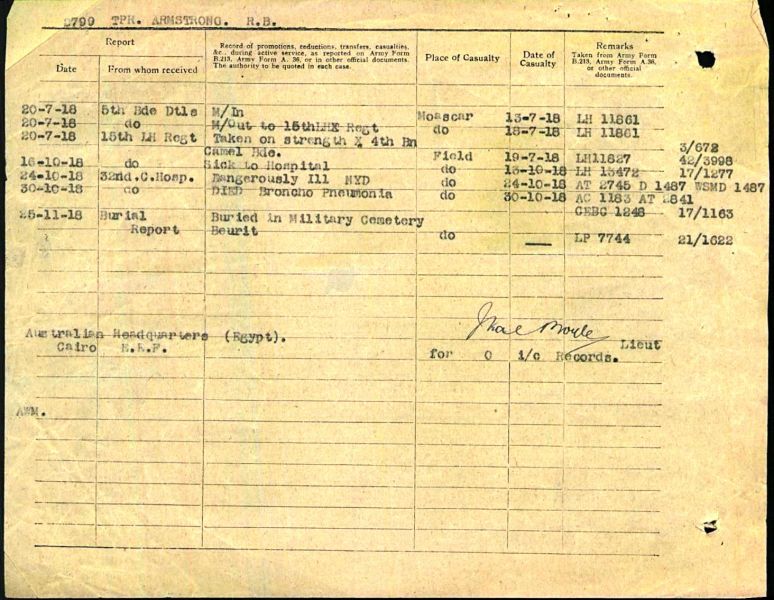 2799 TPR. ARMSTRONG. R.B.
Report
Record of promotions, reductions, transfers, casualties, &c., during active service, as reported on Army Form B.213, Army Form A. 36, or in other official documents. The authority to be quoted in each case.
Place of Casualty
Date of Casualty
Remarks
Taken from Army Form B.213, Army Form A.36, or other official documents.
Date From whom received
20-7-18 5th Bde Dtls M/In Moascar 13-7-18 LH 11861
20-7-18 do M/Out to 15thLHX Regt do 18-7-18 LH 11861
20-7-18 15th LH Regt Taken on strength X 4th Bn 3/672
Camel Bde. Field 19-7-18 LH11827 42/3998
16-10-18 do Sick to Hospital do 13-10-18 LH 13472 17/1277
24-10-18 32nd.C.Hosp. Dangerously Ill NYD do 24-10-18 AT 2745 D 1487 WSMD 1487
30-10-18 do DIED Broncho Pneumonia do 30-10-18 AC 1183 AT 2841
CEBC 1248 17/1163
25-11-18 Burial Buried in Military Cemetery
Report Beurit do — LP 7744 21/1622
Australian Headquarters (Egypt).
Cairo E.E.F.
Lieut
for O i/c Records.
AWM.